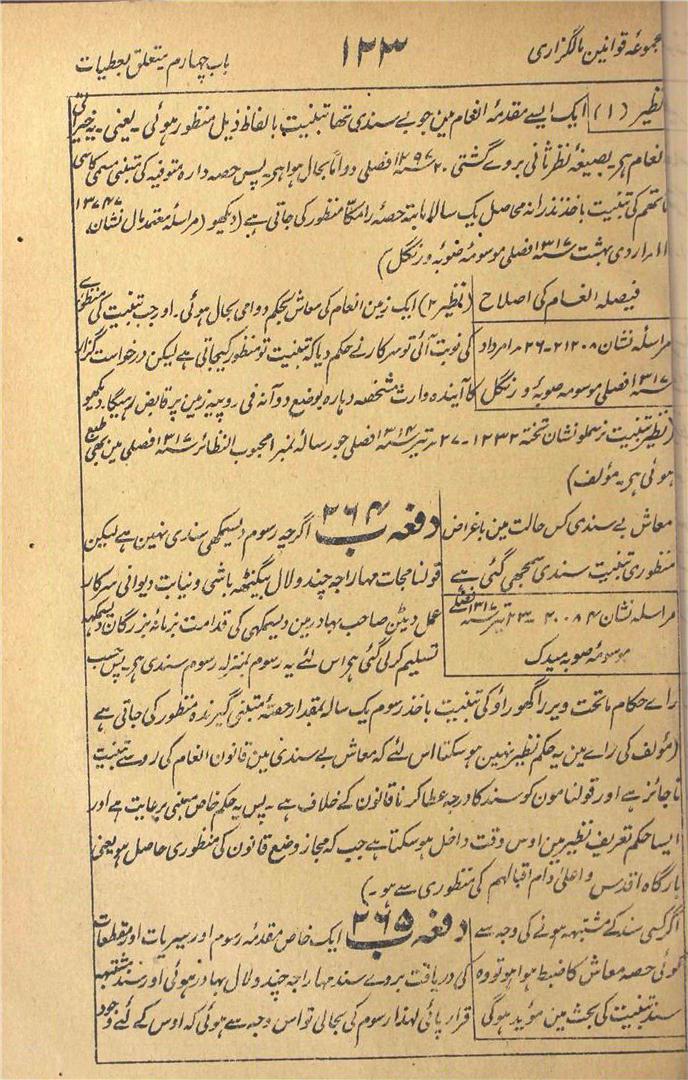 مجموعۂ قوانین مالگزاری
۱۲۳
باب چہارم متعلق بعطیات
نظیر (۱) ایک ایسے مقدمۂ انعام مین جو بے سندی تھا تبنیت بالفاظ ذیل منظور ہوئی ۔ یعنی ۔ یہ خیراتی
انعام ہر ۔ بصیغۂ نظر ثانی بروے گشتی ۲۰ سنہ ۱۲۹۷ فصلی دواماً بحال ہوا ہر ۔ پس حصہ دارہ متوفیہ کی تبنی مسمی کاسی
ناتھم کی تبنیت باخذ نذرانہ محاصل یک سالہ بابتہ حصۂ رامکا منظور کی جاتی ہے (دیکھو (مراسلہ معتمد مال نشان ۱۳۷۴۷
۱۱ ؍ اردی بہشت سنہ ۱۳۱۷ فصلی موسومۂ صوبۂ ورنگل)
فیصلہ انعام کی اصلاح
مراسلۂ نشان ۲۱۲۰۸ - ۲۶ ؍ امرداد
سنہ ۱۳۱۷ فصلی موسومہ صوبۂ ورنگل
(نظیر ۲) ایک زمین انعام کی معاش بحکم دوامی بحال ہوئی ۔ اور جب تبنیت کی منظوری
کی نوبت آئی تو سرکار نے حکم دیا کہ تبنیت تو منظور کیجاتی ہے لیکن درخواست گزار
کا آیندہ وارث مشخصہ دہارہ بوضع دو آنہ فی روپیہ زمین پر قابض رہیگا ۔ دیکھو
(نظیر تبنیت نرسملو نشان تختہ ۱۲۳۲ - ۲۷ ؍ تیر سنہ ۱۳۱۴ فصلی جو رسالہ نمبر ۱ محبوب النظائر سنہ ۱۳۱۷ فصلی مین بھی طبع
ہوئی ہر ۔ مؤلف)
معاش بے سندی کس حالت مین باغراض
منظوری تبنیت سندی سمجھی گئی ہے
مراسلہ نشان ۲۰۰۸۴ - ۲۳ تیر سنہ ۱۳۱۷ فصلی
موسومۂ صوبہ میدک
دفعہ ۲۶۴ ب اگرچہ رسوم دیسمکھی سندی نہین ہے لیکن
قولنامجات مہاراجہ چندو لال بیگنٹھ باشی و نیابت دیوانی سرکار
عمل ڈیٹن صاحب بہادر مین دیسمکھی کی قدامت بزمانۂ بزرگان دیسمکھ
تسلیم کر لی گئی ہر اس لئے یہ رسوم بمنزلہ رسوم سندی ہر ۔ پس حسب
راے حکام ماتحت ویر راگھوراؤ کی تبنیت باخذ رسوم یک سالہ بمقدار حصۂ متبنی گیرندہ منظور کی جاتی ہے
(مؤلف کی راے مین یہ حکم نظیر نہین ہو سکتا اس لئے کہ معاش بے سندی مین قانون انعام کی رو سے تبنیت
ناجائز ہے اور قولنامون کو سند کا درجہ عطا کرنا قانون کے خلاف ہے ۔ پس یہ حکم خاص مبنی بر رعایت ہے اور
ایسا حکم تعریف نظیر مین اوس وقت داخل ہو سکتا ہے جب کہ مجاز وضع قانون کی منظوری حاصل ہو یعنی
بارگاہ اقدس و اعلی دام اقبالہم کی منظوری سے ہو ۔)
اگر کسی سند کے مشتبہ ہونے کی وجہ سے
کوئی حصہ معاش کا ضبط ہوا ہو تو وہ
سند تبنیت کی بحث مین مؤید ہوگی
دفعہ ۲۶۵ ب ایک خاص مقدمہ رسوم اور سیریات اور مقطعات
کی دریافت بروے سند مہاراجہ چندو لال بہادر ہوئی اور سند مشتبہ
قرار پائی لہذا رسوم کی بحالی تو اس وجہ سے ہوئی کہ اوس کے لئے وجود